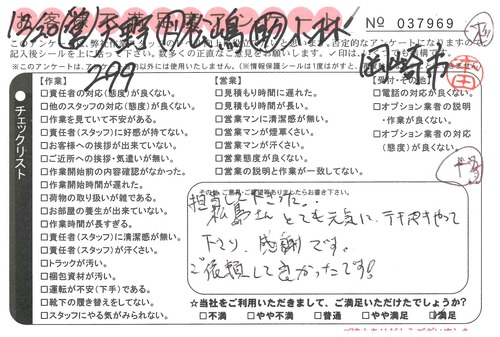 No 037969
岡崎市
299
チェックリスト
【作業】
□責任者の対応(態度)が良くない。
□他のスタッフの対応(態度)が良くない。
□作業を見ていて不安がある。
□責任者(スタッフ)に好感が持てない。
□お客様への挨拶が出来ていない。
□ご近所への挨拶・気遣いが無い。
□作業開始前の内容確認がなかった。
□作業開始時間が遅れた。
□荷物の取り扱いが雑である。
□お部屋の養生が出来ていない。
□作業時間が長すぎる。
□責任者(スタッフ)に清潔感が無い。
□責任者(スタッフ)が汗くさい。
□トラックが汚い。
□梱包資材が汚い。
□運転が不安(下手)である。
□靴下の履き替えをしてない。
□スタッフにやる気がみられない。
【営業】
□見積もり時間に遅れた。
□見積もり時間が長い。
□営業マンに清潔感が無い。
□営業マンが煙草くさい。
□営業マンが汗くさい。
□営業態度が良くない。
□営業の説明と作業が一致してない。
【受付・その他】
□電話の対応が良くない。
□オプション業者の説明
・作業が良くない。
□オプション業者の対応
(態度)が良くない。
その他、ご意見・ご要望等ありましたらお書き下さい。
担当して下さった、
松島さん とても元気に、テキパキやって
下さり、感謝です。
ご依頼して良かったです!
☆当社をご利用いただきまして、ご満足いただけたでしょうか?
□不満 □やや不満 □普通 □やや満足 □満足